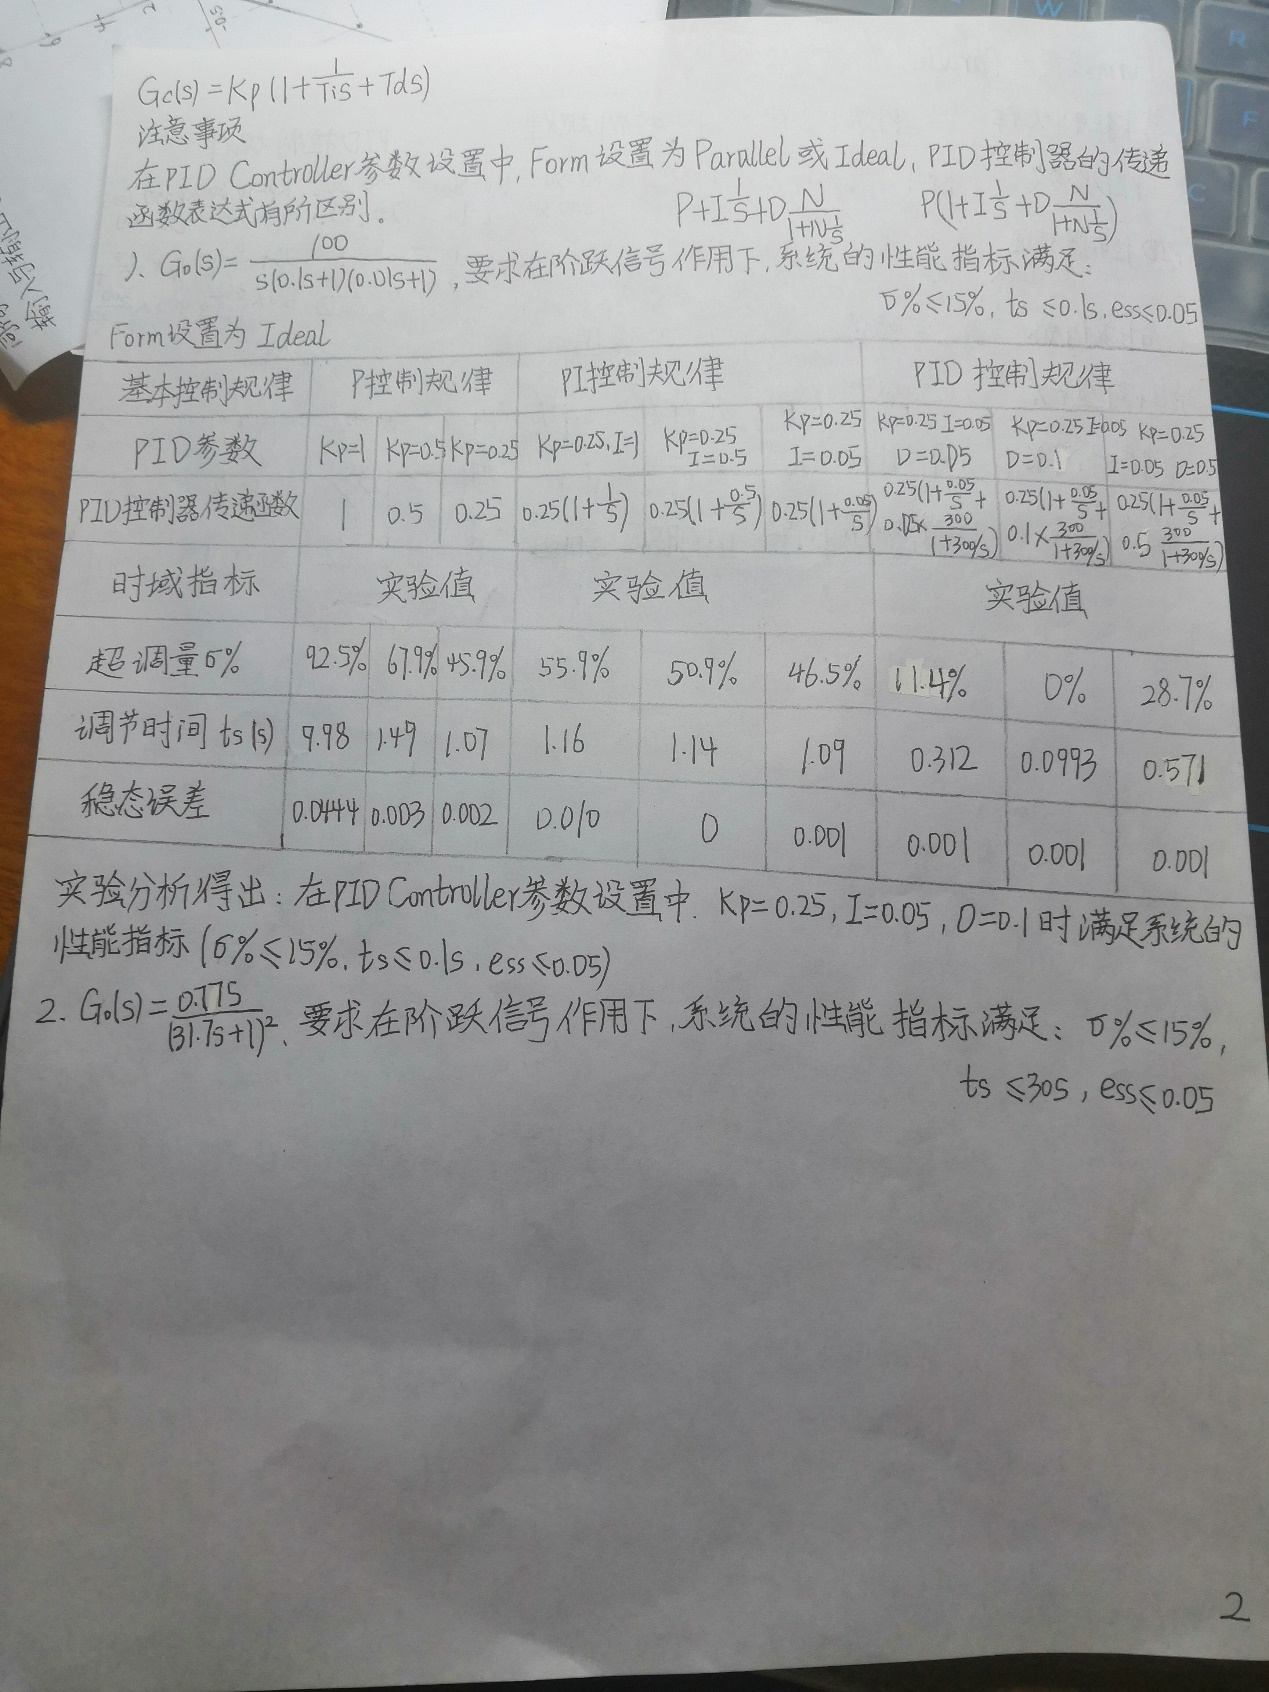 Gc(s)=Kp(1+1/Tis+Tds)
注意事项
在PID Controller参数设置中,Form设置为Parallel或Ideal,PID控制器的传递
函数表达式有所区别。 P+I1/s+D N/(1+N1/s) P(1+I1/s+D N/(1+N1/s))
1、G₀(s)=100/(s(0.1s+1)(0.01s+1)),要求在阶跃信号作用下,系统的性能指标满足:
σ%≤15%, ts≤0.1s, ess≤0.05
Form设置为 Ideal
基本控制规律 P控制规律 PI控制规律 PID控制规律
PID参数 Kp=1 Kp=0.5 Kp=0.25 Kp=0.25,I=1 Kp=0.25 I=0.5 Kp=0.25 I=0.05 Kp=0.25 I=0.05 D=0.05 Kp=0.25 I=0.05 D=0.1 Kp=0.25 I=0.05 D=0.5
PID控制器传递函数 1 0.5 0.25 0.25(1+1/s) 0.25(1+0.5/s) 0.25(1+0.05/s) 0.25(1+0.05/s+0.05×300/(1+300/s)) 0.25(1+0.05/s+0.1×300/(1+300/s)) 0.25(1+0.05/s+0.5 300/(1+300/s))
时域指标 实验值 实验值 实验值
超调量σ% 92.5% 67.9% 45.9% 55.9% 50.9% 46.5% 11.4% 0% 28.7%
调节时间ts(s) 9.98 1.49 1.07 1.16 1.14 1.09 0.312 0.0993 0.571
稳态误差 0.0444 0.003 0.002 0.010 0 0.001 0.001 0.001 0.001
实验分析得出:在PID Controller参数设置中.Kp=0.25,I=0.05,D=0.1时满足系统的
性能指标(σ%≤15%,ts≤0.1s,ess≤0.05)
2、G₀(s)=0.775/(31.7s+1)²、要求在阶跃信号作用下,系统的性能指标满足:σ%≤15%,
ts≤30s,ess≤0.05
2